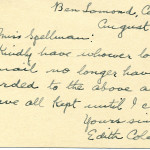 Ben Lomond, C
August
Miss Spellman:
Kindly have whoever lo
mail no longer have
rded to the above a
ve all kept until I c
Yours sin
Edith Col